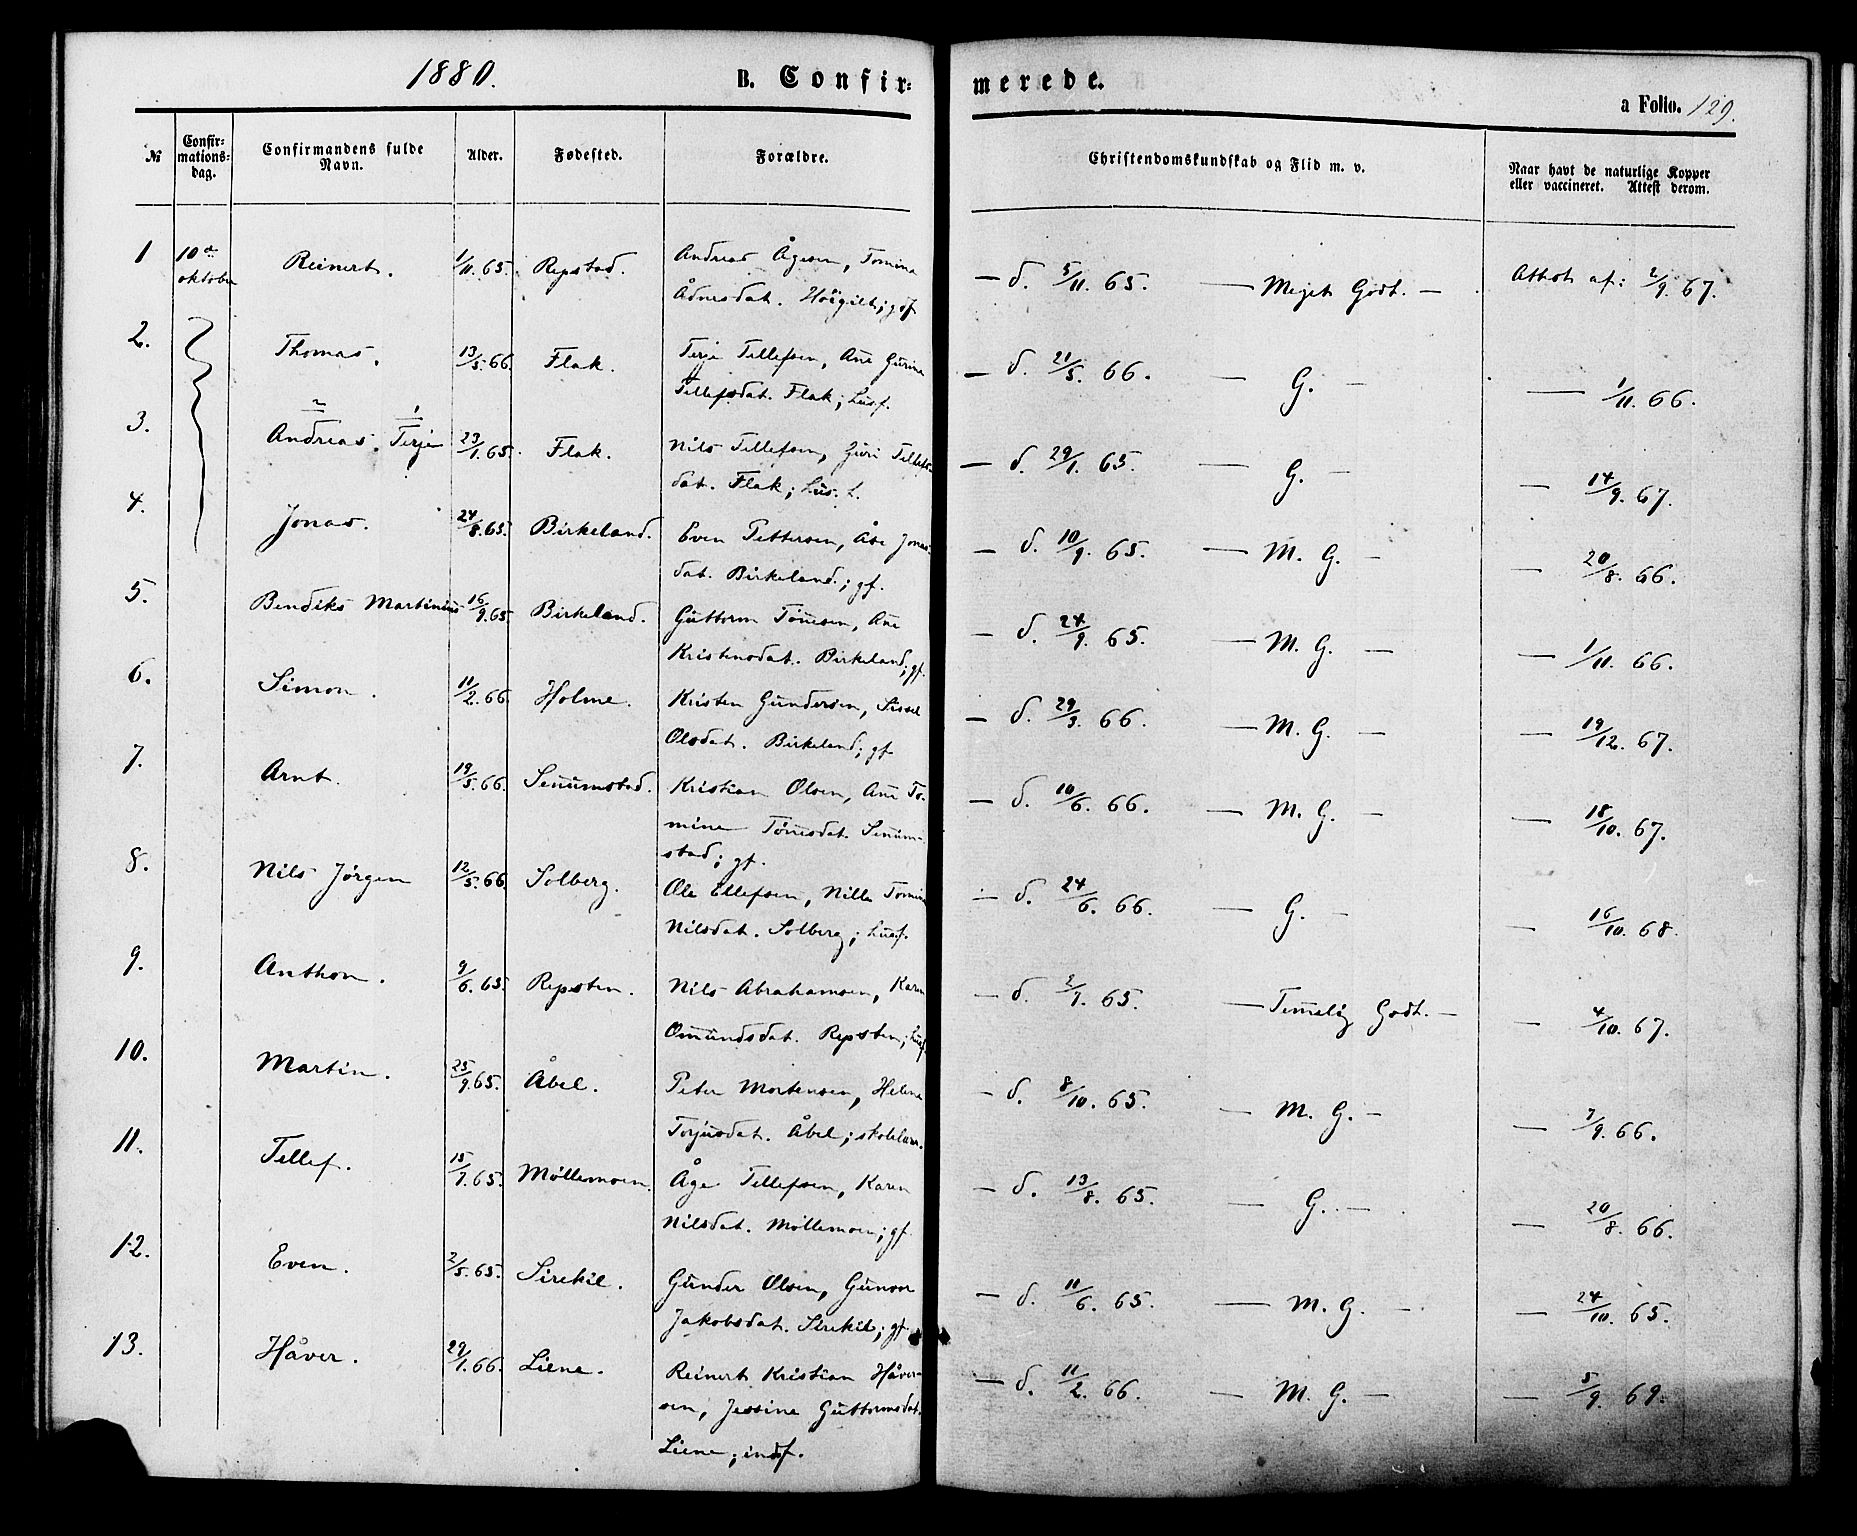 1880.
B. Confir=
merede.
a Folio. 129.
№
Confir=
mations=
dag.
Confirmandens fulde
Navn.
Alder.
Fødested.
Forældre.
Christendomskundskab og Flid m. v.
Naar havt de naturlige Kopper
eller vaccineret. Attest derom.
1 10de oktober Reinert. 1/11. 65. Repstad. Andreas Ågesen, Tomina
Ådnesdat. gf
— d. 5/11. 65. — Meget Godt. — Attest af: 2/9. 67.
2. Thomas. 13/5. 66. Flak. Terje Tellefsen, Ane Gurine
Tellefsdat. Flak; Husf.
— d. 21/5. 66. — G. — — 1/11. 66.
3. 2 Andreas. 1 Terje 23/1. 65. Flak. Nils Tellefsen, Guri Tellefs-
dat. Flak; Hus. L.
— d. 29/1. 65. — G. — — 14/9. 67.
4. Jonas. 24/8. 65. Birkeland. Even Pettersen, Åse Jonas-
dat. Birkeland; gf.
— d. 10/9. 65. — M. G. — — 20/8. 66.
5. Bendiks Martinius 16/9. 65. Birkeland. Guttorm Tönnesen, Ane
Kristensdat. Birkeland; gf.
— d. 24/9. 65. — M. G. — — 1/11. 66.
6. Simon. 11/2. 66. Holme. Kristen Gundersen, Sissel
Olsdat. Birkeland; gf
— d. 29/3. 66. — M. G. — — 19/12. 67.
7. Arnt. 19/5. 66. Senumstad. Kristian Olsen, Ane To-
mine Tönnesdat. Senum-
stad; gf.
— d. 10/6. 66. — M. G. — — 18/10. 67.
8. Nils Jörgen 12/5. 66. Solberg. Ole Ellefsen, Nille Tomine
Nilsdat. Solberg; Husf.
— d. 24/6. 66. — G. — — 16/10. 68.
9. Anthon. 9/6. 65. Repsten. Nils Abrahamsen, Karen
Omundsdat. Repsten; Husf.
— d. 2/7. 65. — Temelig Godt. — — 4/10. 67.
10. Martin. 25/9. 65. Åbel. Peter Mortensen, Helene
Torjusdat. Åbel; skolelærer.
— d. 8/10. 65. — M. G. — — 7/9. 66.
11. Tellef. 15/7. 65. Möllemoen. Åge Tellefsen, Karen
Nilsdat. Möllemoen; gf.
— d. 13/8. 65. — G. — — 20/8. 66.
12. Even. 2/5. 65. Sirekil. Gunder Olsen, Gunvor
Jakobsdat. Sirekil; gf.
— d. 11/6. 65. — M. G. — — 24/10. 65.
13. Håver. 29/1. 66. Liene. Reinert Kristian Håver-
sen, Jessine Guttormsdat.
Liene; indf.
— d. 11/2. 66. — M. G. — — 5/9. 69.